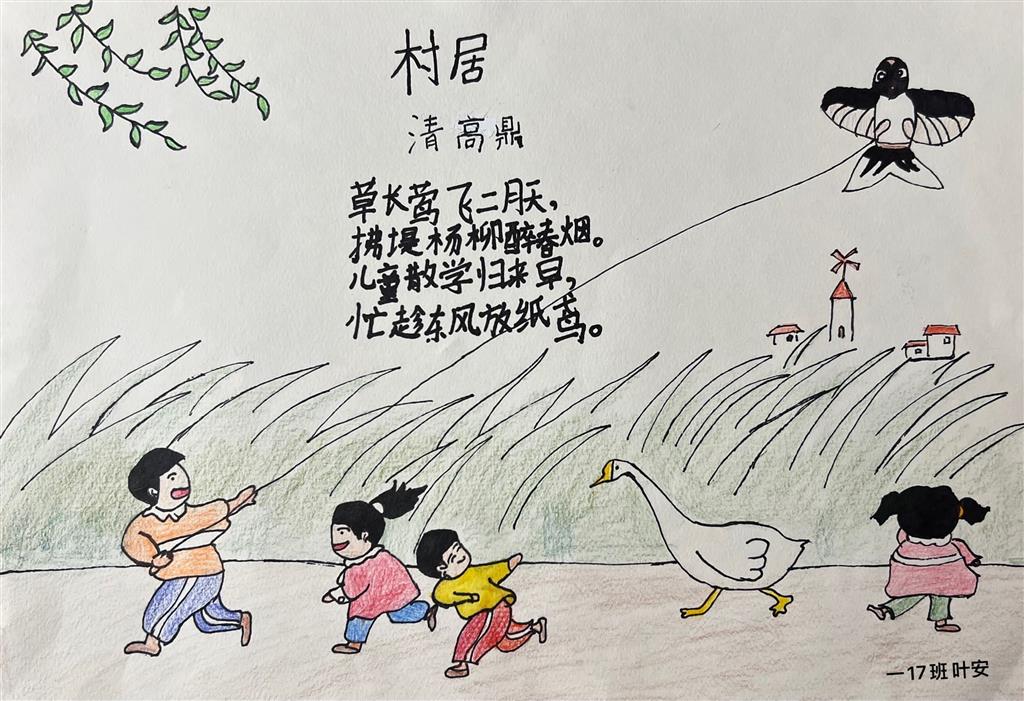 村居
清 高鼎
草长莺飞二月天，
拂堤杨柳醉春烟。
儿童散学归来早，
忙趁东风放纸鸢。
一17班 叶安